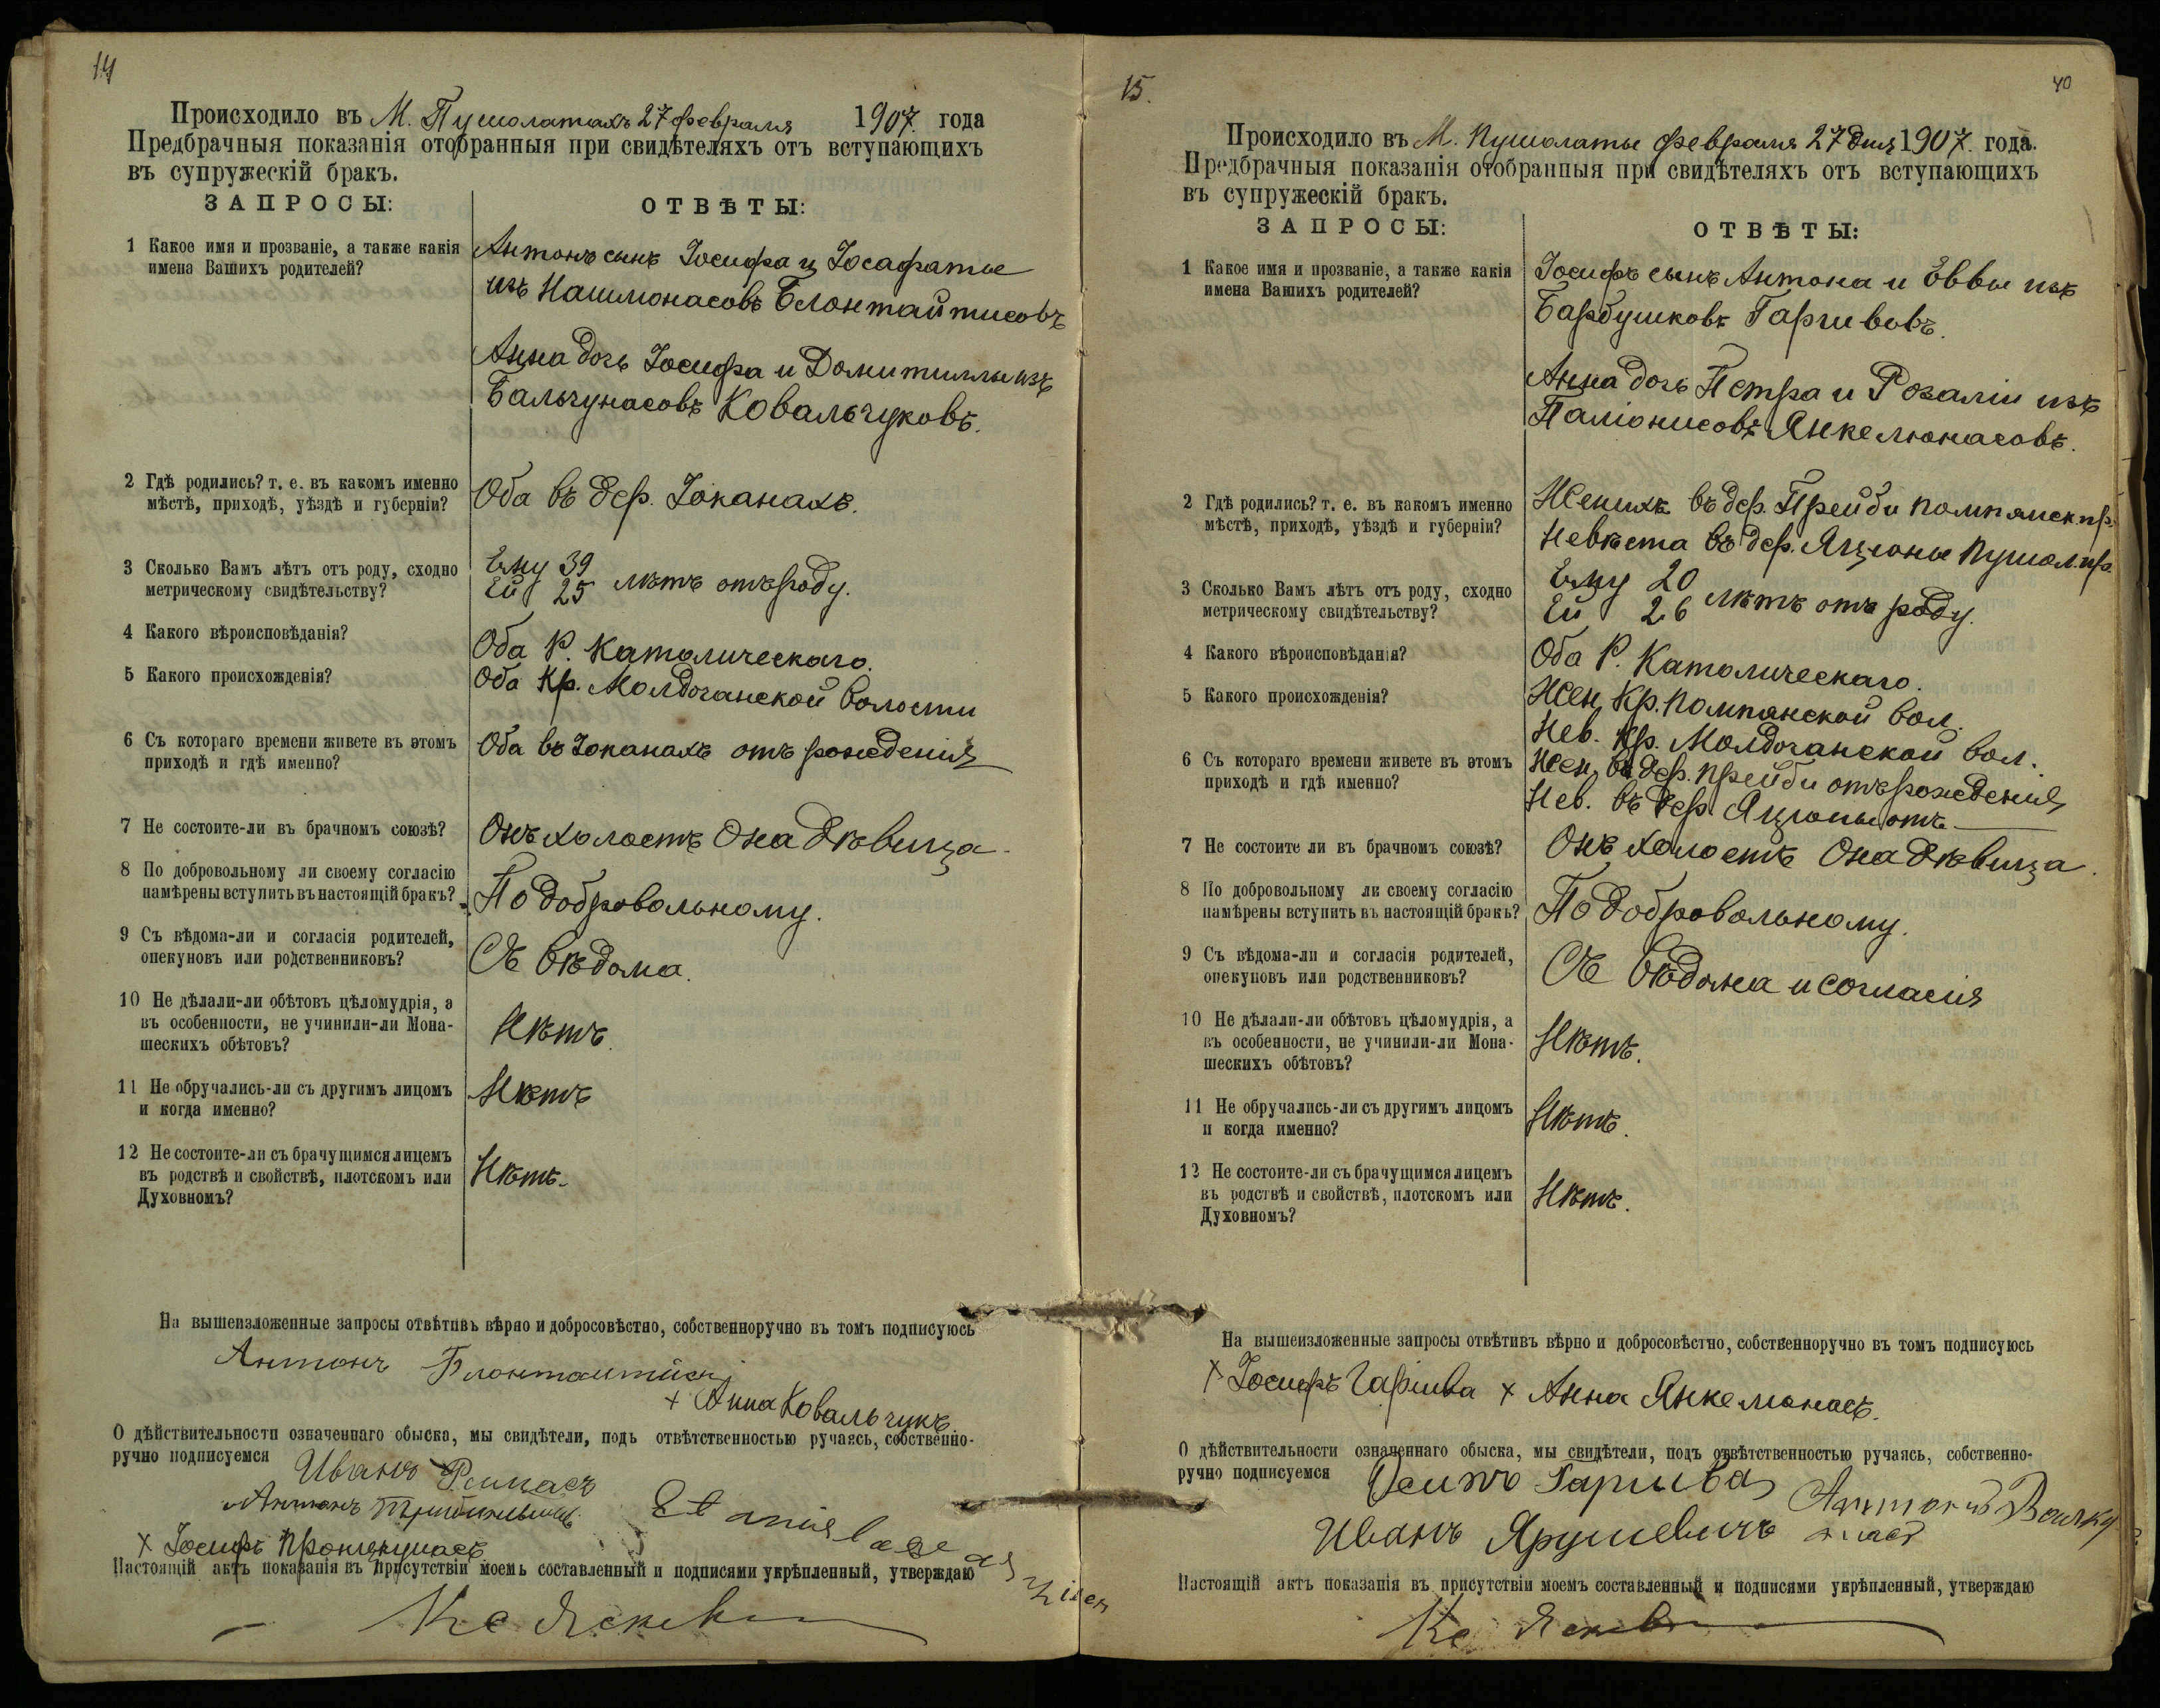 14
Происходило въ М. Пушолатахъ 27 февраля 1907. года
Предбрачныя показанія отобранныя при свидѣтеляхъ отъ вступающихъ
въ супружескій бракъ.
ЗАПРОСЫ:
ОТВѢТЫ:
1 Какое имя и прозваніе, а также какія
имена Вашихъ родителей?
Антонъ сынъ Іосифа и Іосафаты
изъ Нашлюнасовъ Блонтайтисовъ
Анна дочь Іосифа и Домитиллы изъ
Бальчунасовъ Ковальчуковъ.
2 Гдѣ родились? т. е. въ какомъ именно
мѣстѣ, приходѣ, уѣздѣ и губерніи?
Оба въ дер. Іоканахъ.
3 Сколько Вамъ лѣтъ отъ роду, сходно
метрическому свидѣтельству?
Ему 39
Ей 25 лѣтъ отъ роду.
4 Какого вѣроисповѣданія?
Оба Р. Католическаго.
5 Какого происхожденія?
Оба Кр. Молдочанской волости
6 Съ котораго времени живете въ этомъ
приходѣ и гдѣ именно?
Оба въ Іоканахъ отъ рожденія
7 Не состоите-ли въ брачномъ союзѣ?
Онъ холостъ Она дѣвица.
8 По добровольному ли своему согласію
намѣрены вступить въ настоящій бракъ?
По добровольному.
9 Съ вѣдома-ли и согласія родителей,
опекуновъ или родственниковъ?
Съ вѣдома.
10 Не дѣлали-ли обѣтовъ цѣломудрія, а
въ особенности, не учинили-ли Мона-
шескихъ обѣтовъ?
Нѣтъ.
11 Не обручались-ли съ другимъ лицомъ
и когда именно?
Нѣтъ
12 Не состоите-ли съ брачущимся лицемъ
въ родствѣ и свойствѣ, плотскомъ или
Духовномъ?
Нѣтъ.
На вышеизложенные запросы отвѣтивъ вѣрно и добросовѣстно, собственноручно въ томъ подписуюсь
Антонъ
+ Анна Ковальчукъ
О дѣйствительности означеннаго обыска, мы свидѣтели, подъ отвѣтственностью ручаясь, собственно-
ручно подписуемся
Иванъ Римасъ
Антонъ
+ Іосифъ
Настоящій актъ показанія въ присутствіи моемъ составленный и подписями укрѣпленный, утверждаю
15.
40
Происходило въ М. Пушолаты февраля 27 дня 1907. года.
Предбрачныя показанія отобранныя при свидѣтеляхъ отъ вступающихъ
въ супружескій бракъ.
ЗАПРОСЫ:
ОТВѢТЫ:
1 Какое имя и прозваніе, а также какія
имена Вашихъ родителей?
Іосифъ сынъ Антона и Еввы изъ
Барбушковъ Гаршвовъ.
Анна дочь Петра и Розаліи изъ
Паліонисовъ Янкелюнасовъ.
2 Гдѣ родились? т. е. въ какомъ именно
мѣстѣ, приходѣ, уѣздѣ и губерніи?
Женихъ въ дер. Прейди помпянск. пр.
Невѣста въ дер. Яцюны Пушол. пр.
3 Сколько Вамъ лѣтъ отъ роду, сходно
метрическому свидѣтельству?
Ему 20
Ей 26 лѣтъ отъ роду.
4 Какого вѣроисповѣданія?
Оба Р. Католическаго.
5 Какого происхожденія?
Жен. Кр. помпянской вол.
Нев. Кр. Молдочанской вол.
6 Съ котораго времени живете въ этомъ
приходѣ и гдѣ именно?
Жен. въ дер. прейди отъ рожденія
Нев. въ дер. Яцюны отъ
7 Не состоите ли въ брачномъ союзѣ?
Онъ холостъ Она дѣвица.
8 По добровольному ли своему согласію
намѣрены вступить въ настоящій бракъ?
По добровольному.
9 Съ вѣдома-ли и согласія родителей,
опекуновъ или родственниковъ?
Съ вѣдома и согласія
10 Не дѣлали-ли обѣтовъ цѣломудрія, а
въ особенности, не учинили-ли Мона-
шескихъ обѣтовъ?
Нѣтъ.
11 Не обручались-ли съ другимъ лицомъ
и когда именно?
Нѣтъ.
12 Не состоите-ли съ брачущимся лицемъ
въ родствѣ и свойствѣ, плотскомъ или
Духовномъ?
Нѣтъ.
На вышеизложенные запросы отвѣтивъ вѣрно и добросовѣстно, собственноручно въ томъ подписуюсь
+ Іосифъ Гаршва + Анна Янкелюнасъ.
О дѣйствительности означеннаго обыска, мы свидѣтели, подъ отвѣтственностью ручаясь, собственно-
ручно подписуемся
Осипъ Гаршва
Иванъ Ярушевичъ
Настоящій актъ показанія въ присутствіи моемъ составленный и подписями укрѣпленный, утверждаю